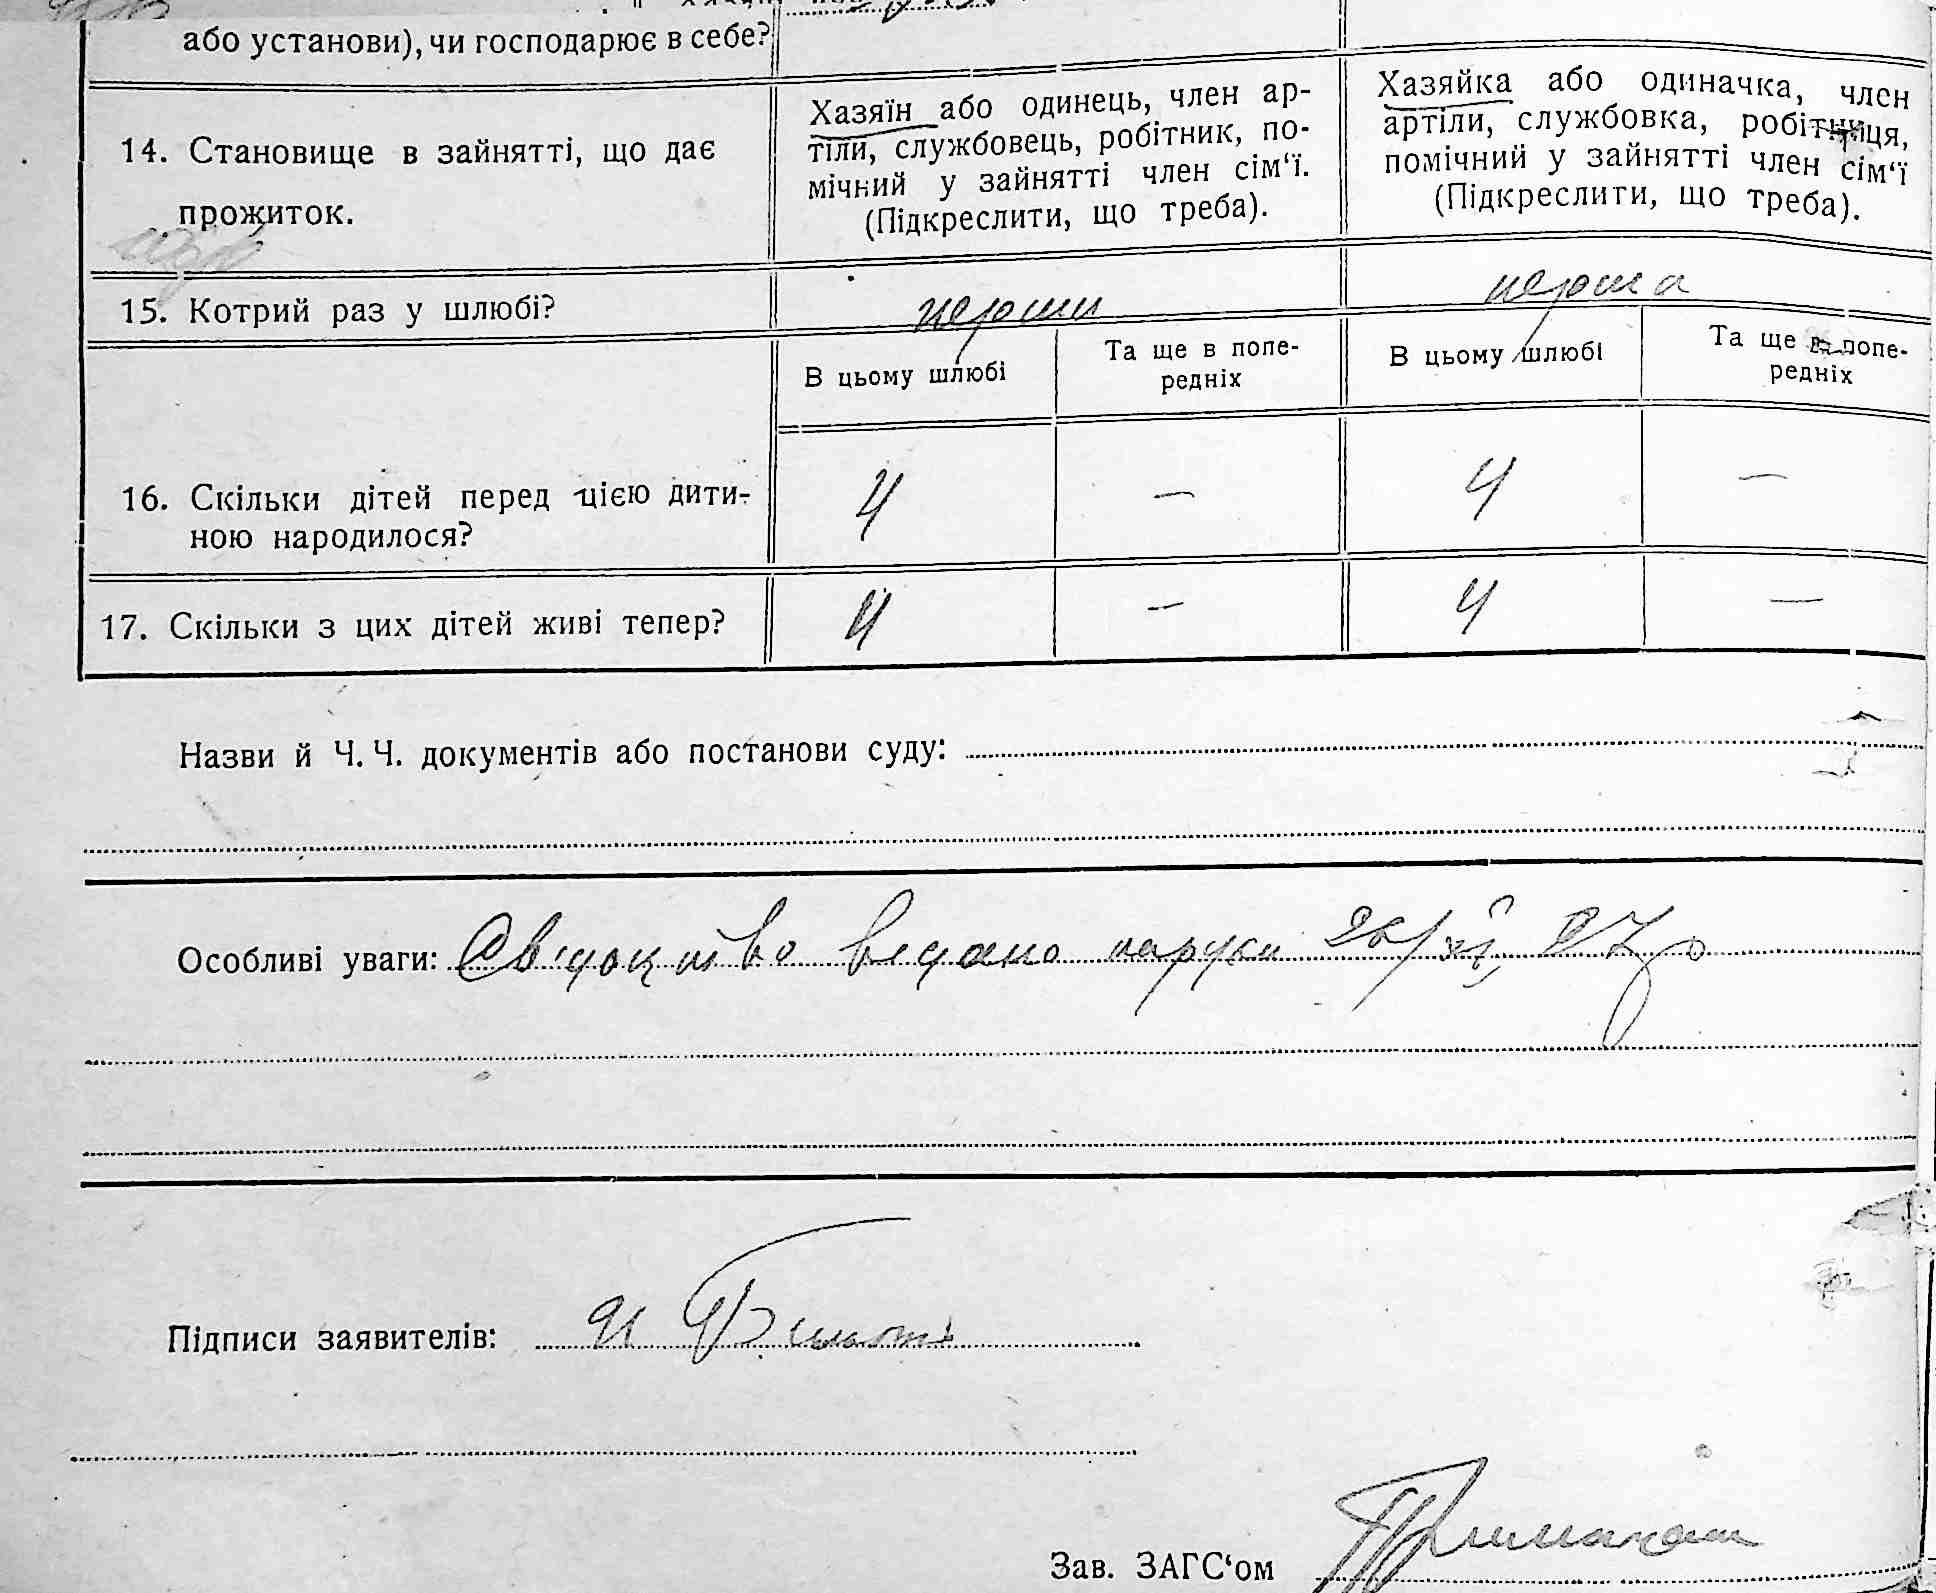 або установи), чи господарює в себе?
14. Становище в зайнятті, що дає
прожиток.
Хазяїн або одинець, член ар-
тіли, службовець, робітник, по-
мічний у зайнятті член сім‘ї.
(Підкреслити, що треба).
Хазяйка або одиначка, член
артіли, службовка, робітниця,
помічний у зайнятті член сім‘ї
(Підкреслити, що треба).
15. Котрий раз у шлюбі?
перши
перша
В цьому шлюбі
Та ще в попе-
редніх
В цьому шлюбі
Та ще в попе-
редніх
16. Скільки дітей перед цією дити-
ною народилося?
4
—
4
—
17. Скільки з цих дітей живі тепер?
4
—
4
—
Назви й Ч. Ч. документів або постанови суду:
Особливі уваги: Свідоцтво видано на руки 26/XI 27 р
Підписи заявителів:
Зав. ЗАГС‘ом